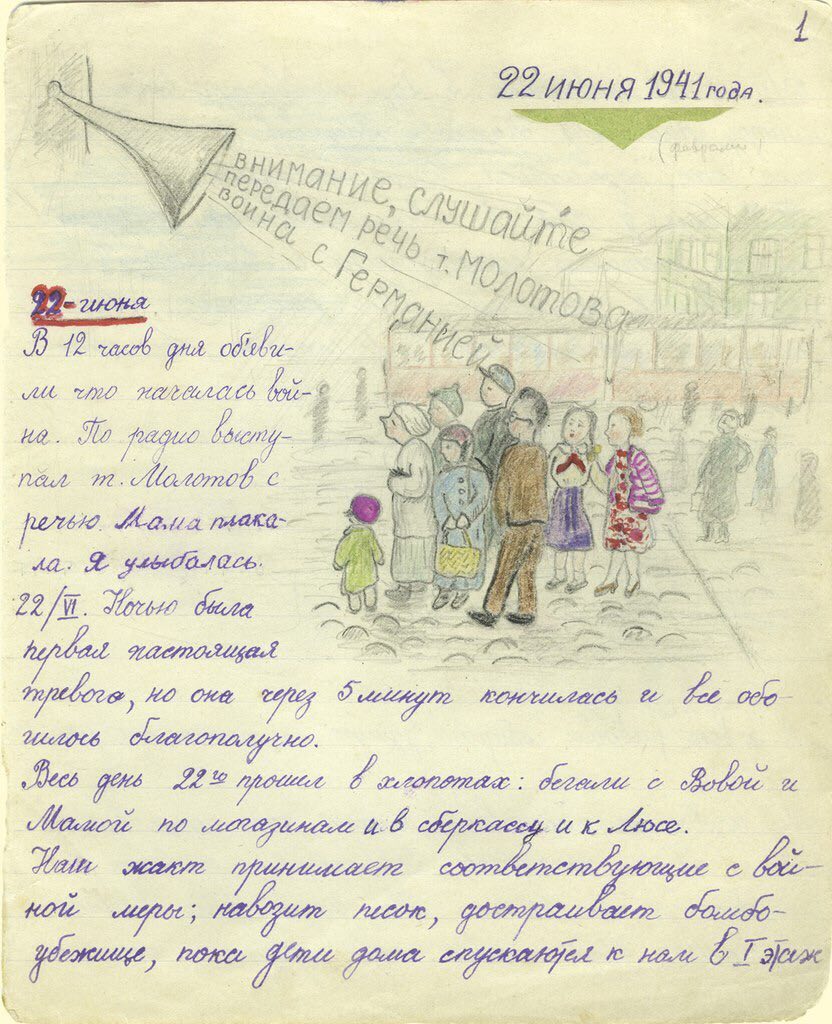 1
22 июня 1941 года.
внимание, слушайте
передаем речь т. Молотова
война с Германией
22-июня
В 12 часов дня объяви-
ли что началась вой-
на. По радио высту-
пал т. Молотов с
речью. Мама плака-
ла. Я улыбалась.
22/VI. Ночью была
первая настоящая
тревога, но она через 5 минут кончилась и всё обо-
шлось благополучно.
Весь день 22го прошел в хлопотах: бегали с Вовой и
Мамой по магазинам и в сберкассу и к Люсе.
Наш жакт принимает соответствующие с вой-
ной меры; навозит песок, достраивает бомбо-
убежище, пока дети дома спускаются к нам в I этаж